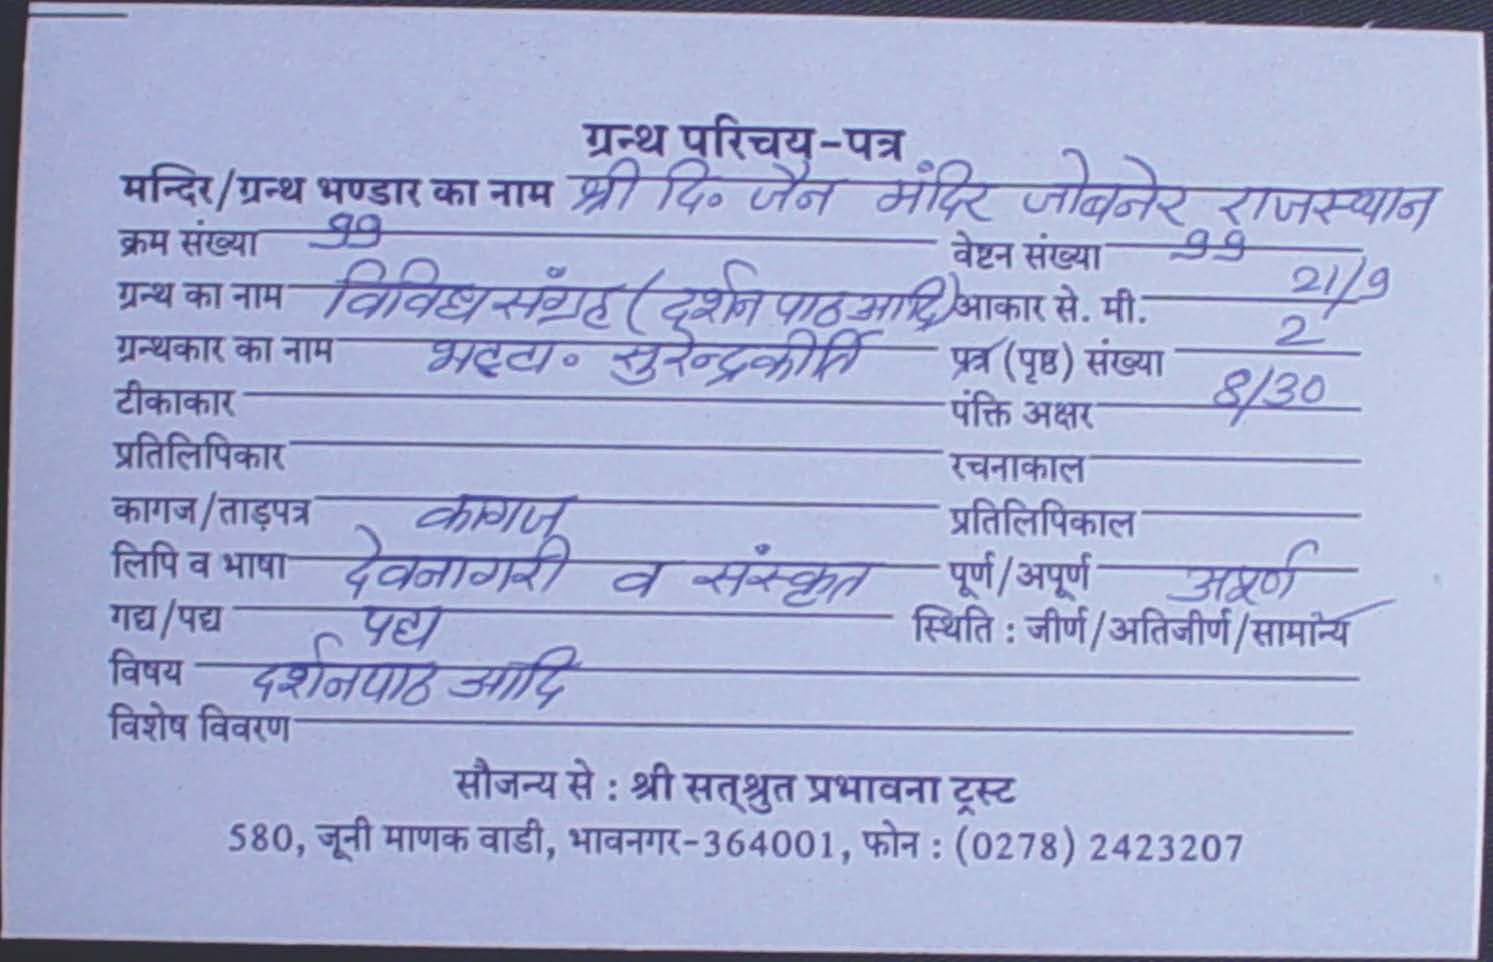 ग्रन्थ परिचय-पत्र
मन्दिर/ग्रन्थ भण्डार का नाम श्री दि॰ जैन मंदिर जोबनेर राजस्थान
क्रम संख्या 99 वेष्टन संख्या 99
ग्रन्थ का नाम विविध संग्रह (दर्शन पाठ आदि) आकार से. मी. 21/9
ग्रन्थकार का नाम भट्टा॰ सुरेन्द्रकीर्ति पत्र (पृष्ठ) संख्या 2
टीकाकार पंक्ति अक्षर 8/30
प्रतिलिपिकार रचनाकाल
कागज/ताड़पत्र कागज प्रतिलिपिकाल
लिपि व भाषा देवनागरी व संस्कृत पूर्ण/अपूर्ण अपूर्ण
गद्य/पद्य पद्य स्थिति : जीर्ण/अतिजीर्ण/सामान्य
विषय दर्शनपाठ आदि
विशेष विवरण
सौजन्य से : श्री सत्श्रुत प्रभावना ट्रस्ट
580, जूनी माणक वाडी, भावनगर-364001, फोन : (0278) 2423207